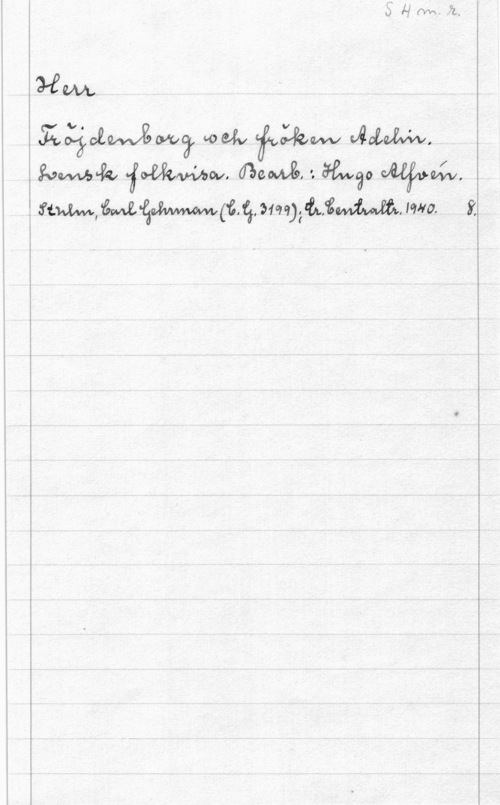 S H m. r.
Herr
Fröjdenborg och fröken Adelin.
Svensk folkvisa. Bearb.: Hugo Alfvén.
Sthlm, Carl Gehrman (C. G. 3199); tr. Centraltr. 1940. 8.